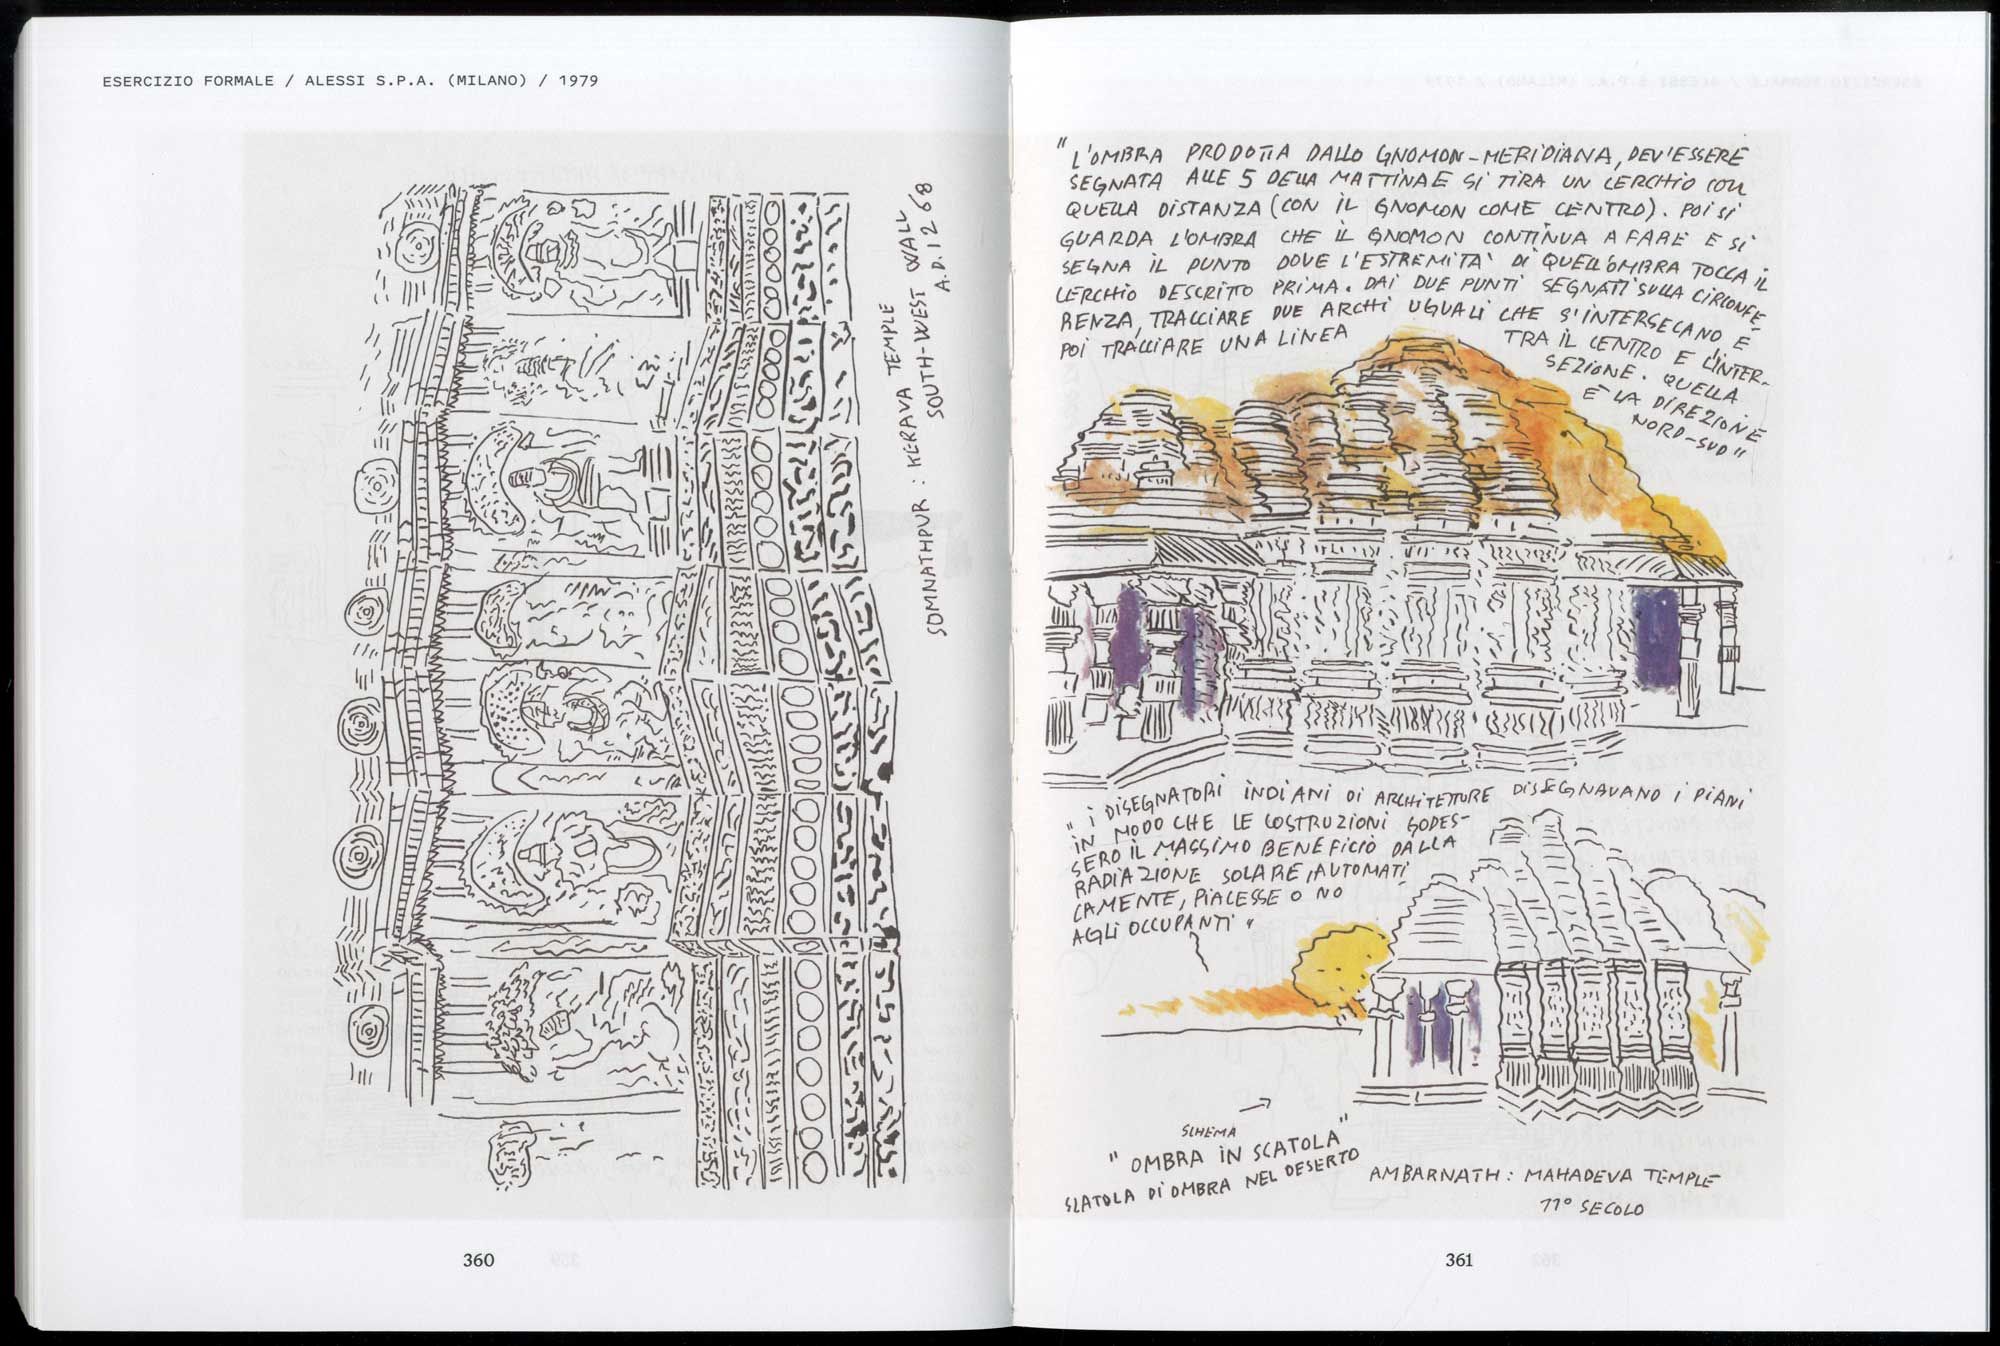 ESERCIZIO FORMALE / ALESSI S.P.A. (MILANO) / 1979
SOMNATHPUR : KERAVA TEMPLE
SOUTH-WEST WALL
A.D. 1268
360
"L'OMBRA PRODOTTA DALLO GNOMON-MERIDIANA, DEV'ESSERE
SEGNATA ALLE 5 DELLA MATTINA E SI TIRA UN CERCHIO CON
QUELLA DISTANZA (CON IL GNOMON COME CENTRO). POI SI
GUARDA L'OMBRA CHE IL GNOMON CONTINUA A FARE E SI
SEGNA IL PUNTO DOVE L'ESTREMITA' DI QUELL'OMBRA TOCCA IL
CERCHIO DESCRITTO PRIMA. DAI DUE PUNTI SEGNATI SULLA CIRCONFE
RENZA, TRACCIARE DUE ARCHI UGUALI CHE S'INTERSECANO E
POI TRACCIARE UNA LINEA TRA IL CENTRO E L'INTER-
SEZIONE. QUELLA
È LA DIREZIONE
NORD-SUD"
"I DISEGNATORI INDIANI DI ARCHITETTURE DISEGNAVANO I PIANI
IN MODO CHE LE COSTRUZIONI GODES-
SERO IL MASSIMO BENEFICIO DALLA
RADIAZIONE SOLARE, AUTOMATI
CAMENTE, PIACESSE O NO
AGLI OCCUPANTI"
SCHEMA
"OMBRA IN SCATOLA"
SCATOLA DI OMBRA NEL DESERTO
AMBARNATH : MAHADEVA TEMPLE
11° SECOLO
361